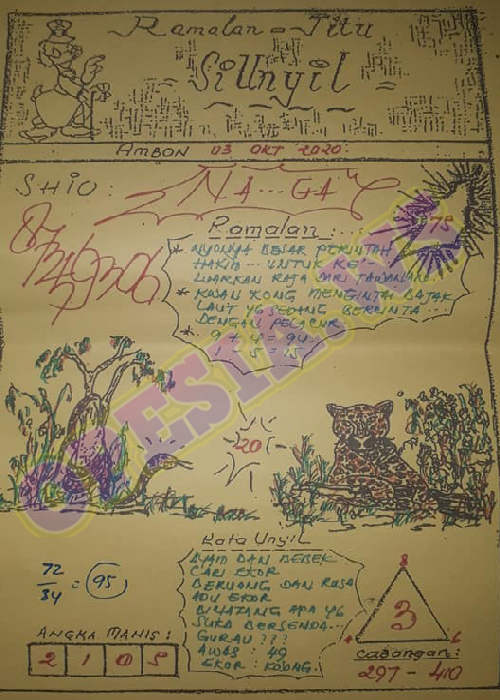 Ramalan = Jitu
SiUnyil
AMBON 03 OKT 2020
SHIO : NA...GA
75
Ramalan :
* NYONYA BESAR PERINTAH
HAKIM... UNTUK KE
LUARKAN RAJA DARI
* KWAN KONG MENGINTAI BAJAK
LAUT YG SEDANG BERCINTA
DENGAN PELACUR
9 + 4 = 94
1 5 = 15
20
Kata Unyil
AYAM DAN BEBEK
CARI EKOR
BERUANG DAN RUSA
ADU EKOR
BINATANG APA YG
SUKA BERSENDA...
GURAU ???
AWAS : 49
EKOR : KODONG.
72
34 = 95
ANGKA MANIS :
2 1 0 5
8
3
4 6
Cabangan :
297 - 410